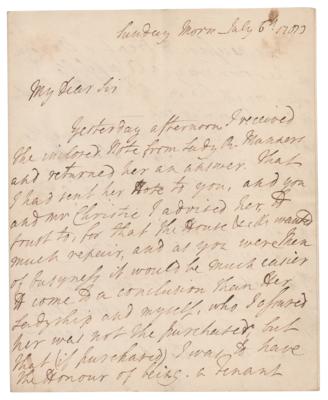 Sunday Morn July 6th
My Dear Sir
Yesterday afternoon I received
the inclosed Note from Lady R. Manners
and returned her an answer. That
I had sent her Note to you, and you
and Mr Christie I advised her to
trust to; for that the House &c &c wanted
much repair, and as you were Men
of busyness it would be much easier
to come to a conclusion than Her
Ladyship and myself, who I assured
her was not the purchaser, but
that (if purchased) I was to have
the Honour of being a tenant